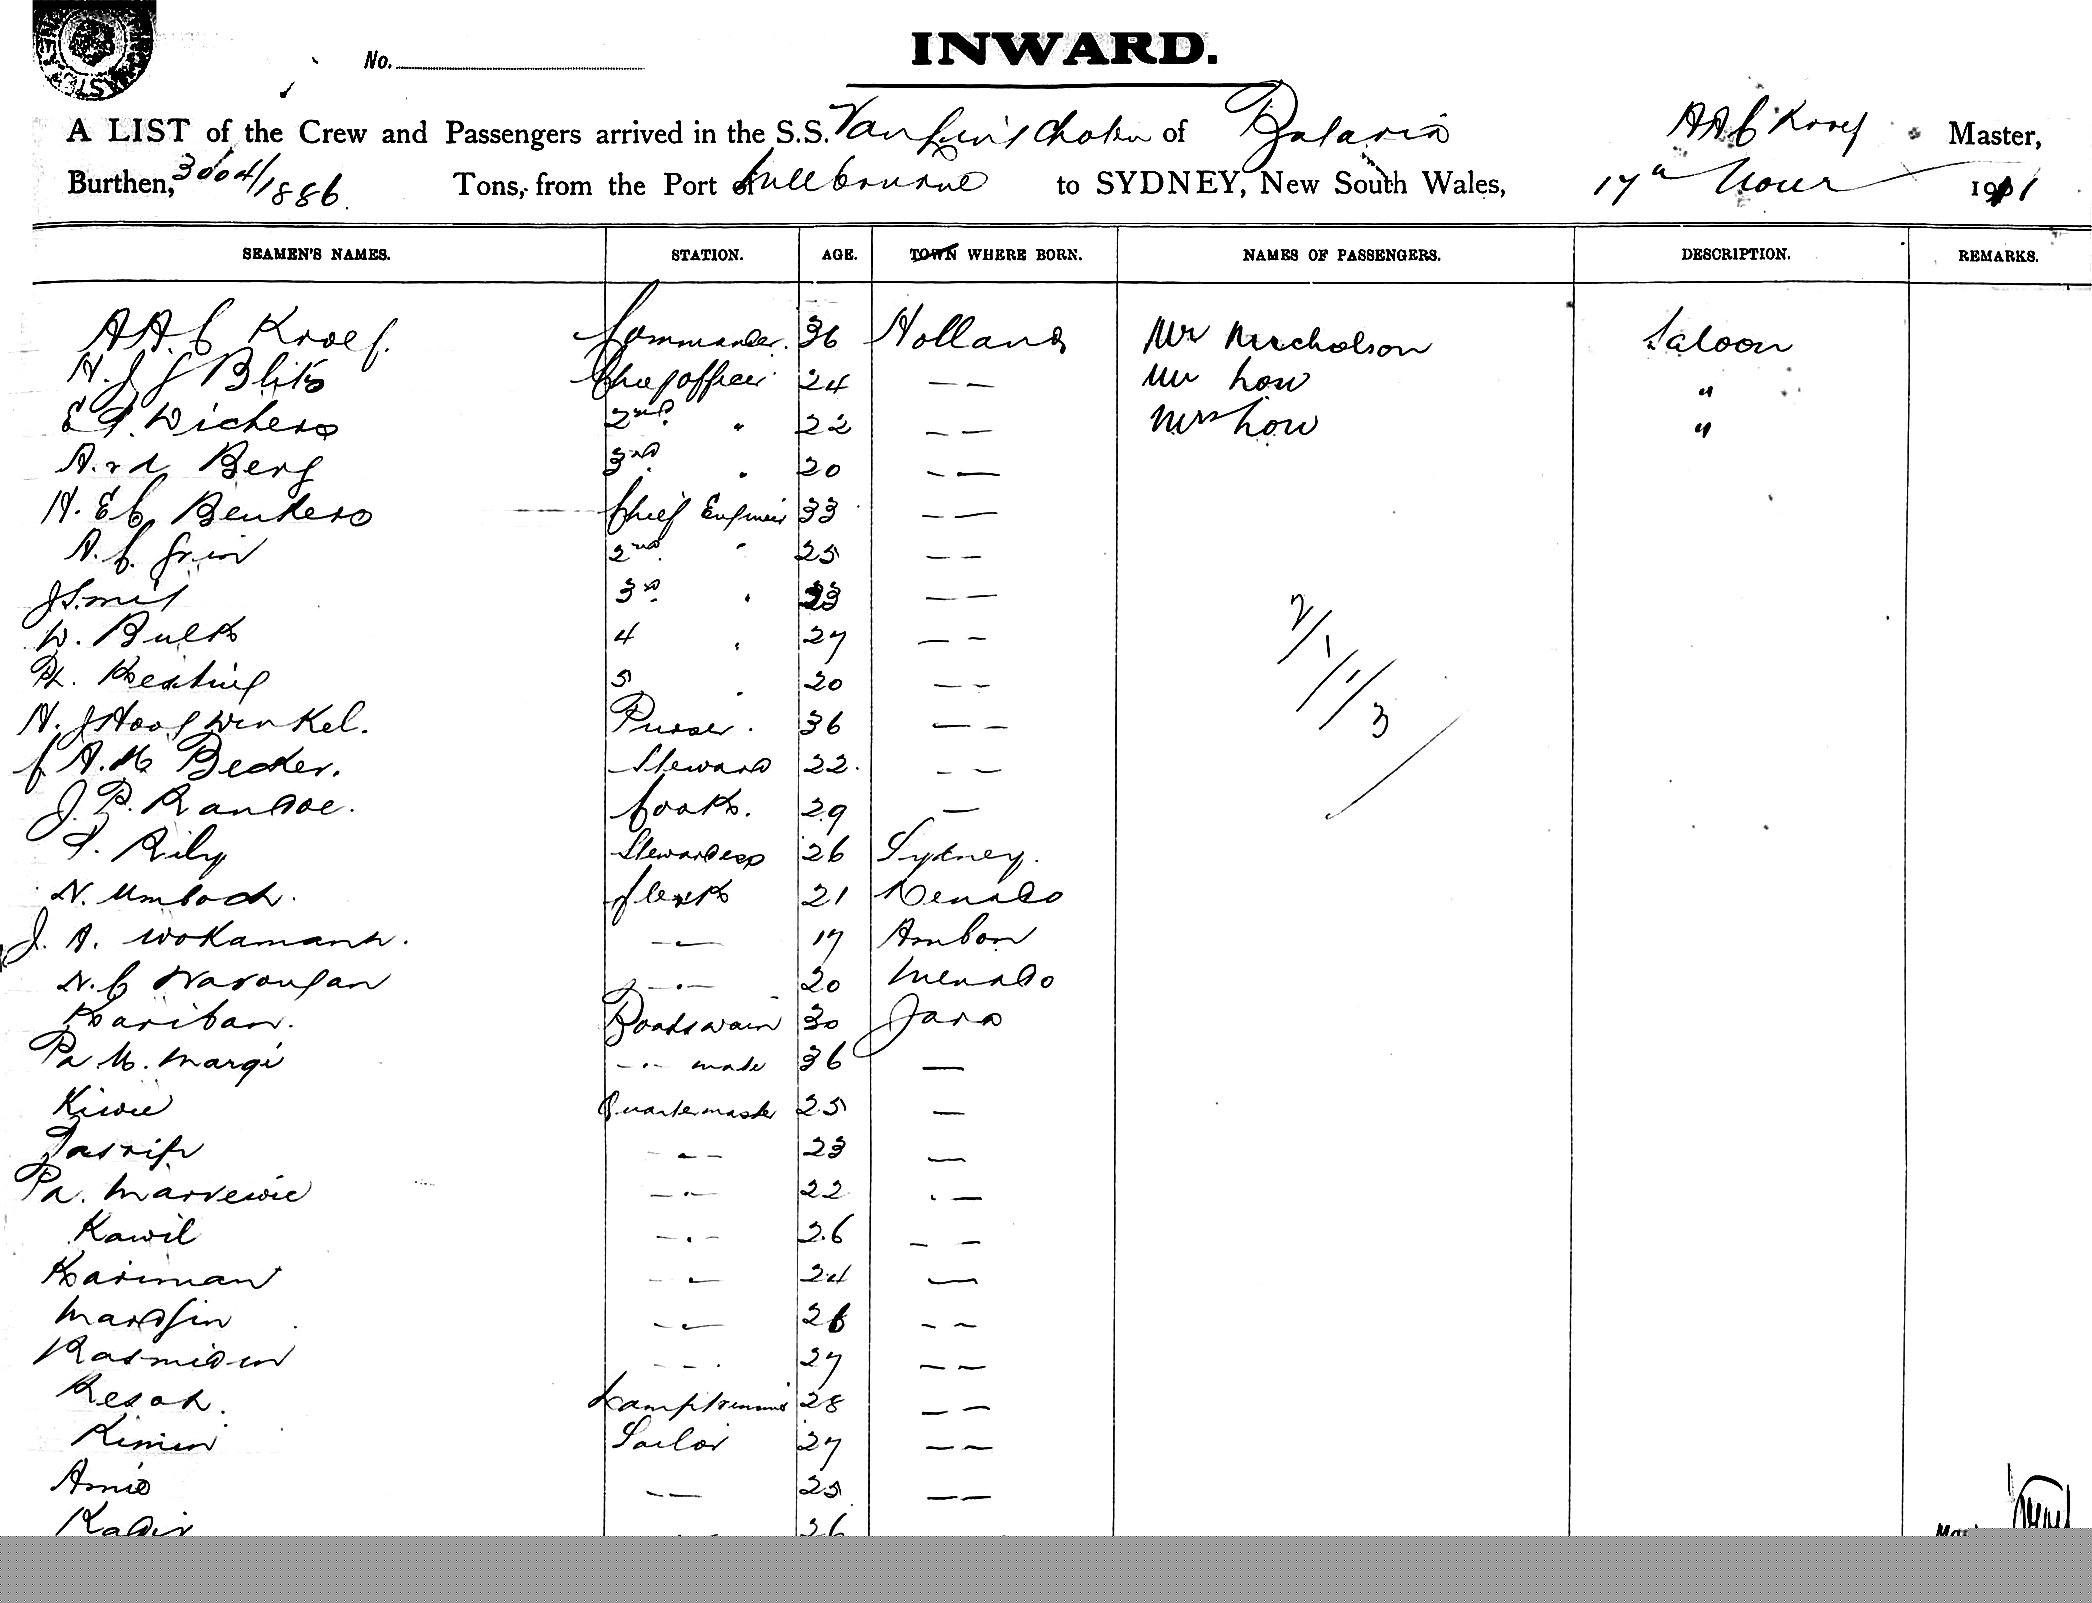 No.
INWARD.
A LIST of the Crew and Passengers arrived in the S.S. of Batavia AAC Kroef Master,
Burthen, 3004/1886 Tons, from the Port of Melbourne to SYDNEY, New South Wales, 17th 1911
SEAMEN'S NAMES. STATION. AGE. TOWN WHERE BORN. NAMES OF PASSENGERS. DESCRIPTION. REMARKS.
AAC Kroef. Commander. 36 Holland Mr Saloon
H. J J Chief officer 24 — — Mr Low "
E Wichers 2nd. " 22 — — Mrs Low "
A. v d Berg 3rd. " 20 — —
H. E C Beukers Chief Engineer 33 — —
A. C. Grin 2nd " 25 — —
J Smit 3rd " 23 — —
W. Bulk 4 " 27 — —
5 " 20 — —
H. J Hoogwinkel. Purser. 36 — —
C A. M Becker. Steward 22. — —
J. P. Randoe. Cook. 29 —
Rily Stewardess 26 Sydney.
N. Umboch. Clerk 21 Menado
J. A. Wokamann. — 17 Ambon
N. C — " — 20 Menado
Kariban. Boatswain 30 Java
Pa M. Margi — " — mate 36 —
Kiwie Quartermaster 25 —
Tasrip — " — 23 —
Pa. — " — 22 " —
Kawil — " — 26 — —
Kariman — " — 24 —
Mardjin — " — 26 — —
Rasmidin — — " 27 — —
Resah. Lamptrimmer 28 — —
Kimin Sailor 27 — —
Amid — — 25 — —
Kadir 26
2/1/1/3